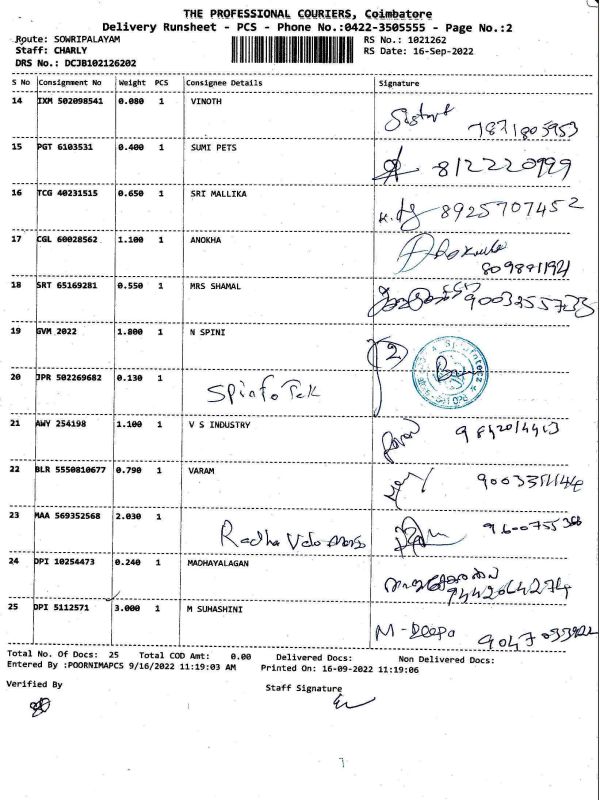 THE PROFESSIONAL COURIERS, Coimbatore
Delivery Runsheet - PCS - Phone No.:0422-3505555 - Page No.:2
Route: SOWRIPALAYAM RS No.: 1021262
Staff: CHARLY RS Date: 16-Sep-2022
DRS No.: DCJB102126202
S No Consignment No Weight PCS Consignee Details Signature
14 IXM 502098541 0.080 1 VINOTH
7871805953
15 PGT 6103531 0.400 1 SUMI PETS 8122220999
16 TCG 40231515 0.650 1 SRI MALLIKA 8925707452
17 CGL 60028562 1.100 1 ANOKHA
8098811921
18 SRT 65169281 0.550 1 MRS SHAMAL
19 GVM 2022 1.800 1 N SPINI 2
20 JPR 502269682 0.130 1 SpinfoTek
21 AWY 254198 1.100 1 V S INDUSTRY
22 BLR 5550810677 0.790 1 VARAM
23 MAA 569352568 2.030 1 Radha
24 DPI 10254473 0.240 1 MADHAYALAGAN
9442064274
25 DPI 5112571 3.000 1 M SUHASHINI M-Deepa
Total No. Of Docs: 25 Total COD Amt: 0.00 Delivered Docs: Non Delivered Docs:
Entered By :POORNIMAPCS 9/16/2022 11:19:03 AM Printed On: 16-09-2022 11:19:06
Verified By Staff Signature